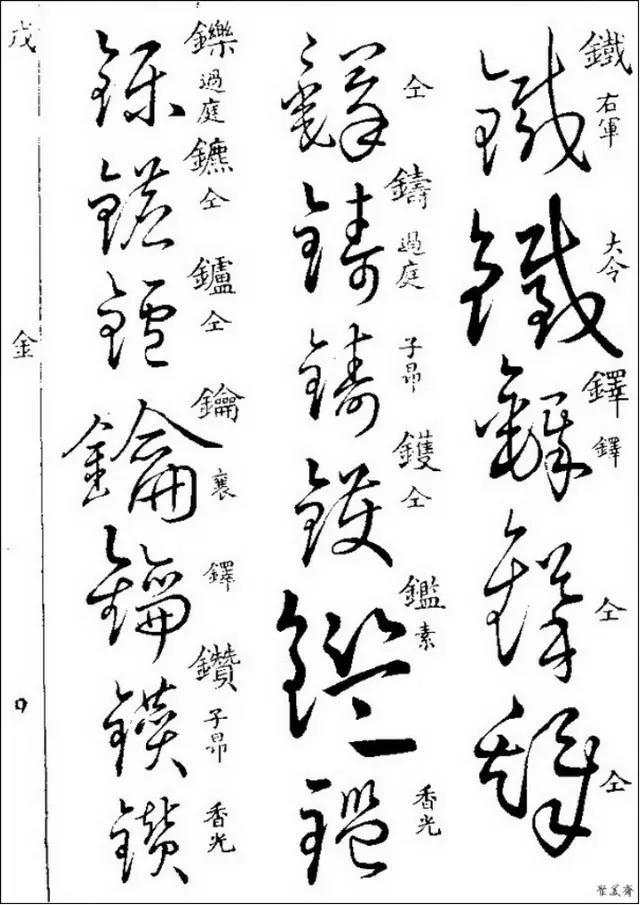 鐵 右軍
鐵 大令
鐸 鐸
鐸 仝
鐸 仝
鐸 仝
鑄 過庭
鑄 子昂
鑊 仝
鑑 素
鑑 香光
鑠 過庭
鑣 仝
鑪 仝
鑰 襄
鑰 鐸
鑽 子昂
鑽 香光
戊
金